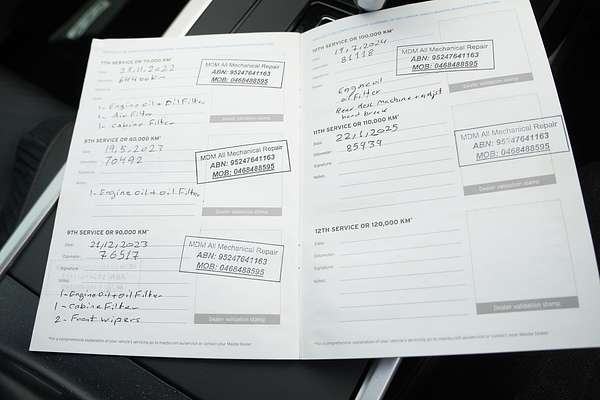 7TH SERVICE OR 70,000 KM*
Date: 28,11,2022
64400km
MDM All Mechanical Repair
ABN: 95247641163
MOB: 0468488595
1- Engine oil + Oil Filter
1- Air Filter
1- Cabine Filter
Dealer validation stamp
8TH SERVICE OR 80,000 KM*
Date: 19,5,2023
Odometer: 70492
MDM All Mechanical Repair
ABN: 95247641163
MOB: 0468488595
Signature:
Notes:
1- Engine oil + oil Filter
Dealer validation stamp
9TH SERVICE OR 90,000 KM*
Date: 21,12,2023
Odometer: 76517
MDM All Mechanical Repair
ABN: 95247641163
MOB: 0468488595
Signature:
1- Engine oil + oil Filter
1- Cabine Filter
2- Front wipers
Dealer validation stamp
*For a comprehensive explanation of your vehicle's servicing go to mazda.com.au/service or contact your Mazda Dealer
10TH SERVICE OR 100,000 KM*
19,7,2024
81118
MDM All Mechanical Repair
ABN: 95247641163
MOB: 0468488595
Engine oil
oil Filter
Rear Machine + adjst
hand break
Dealer validation stamp
11TH SERVICE OR 110,000 KM*
Date: 22,1,2025
Odometer: 85939
MDM All Mechanical Repair
ABN: 95247641163
MOB: 0468488595
Signature:
Notes:
Dealer validation stamp
12TH SERVICE OR 120,000 KM*
Date:
Odometer:
Signature:
Notes:
Dealer validation stamp
*For a comprehensive explanation of your vehicle's servicing go to mazda.com.au/service or contact your Mazda Dealer